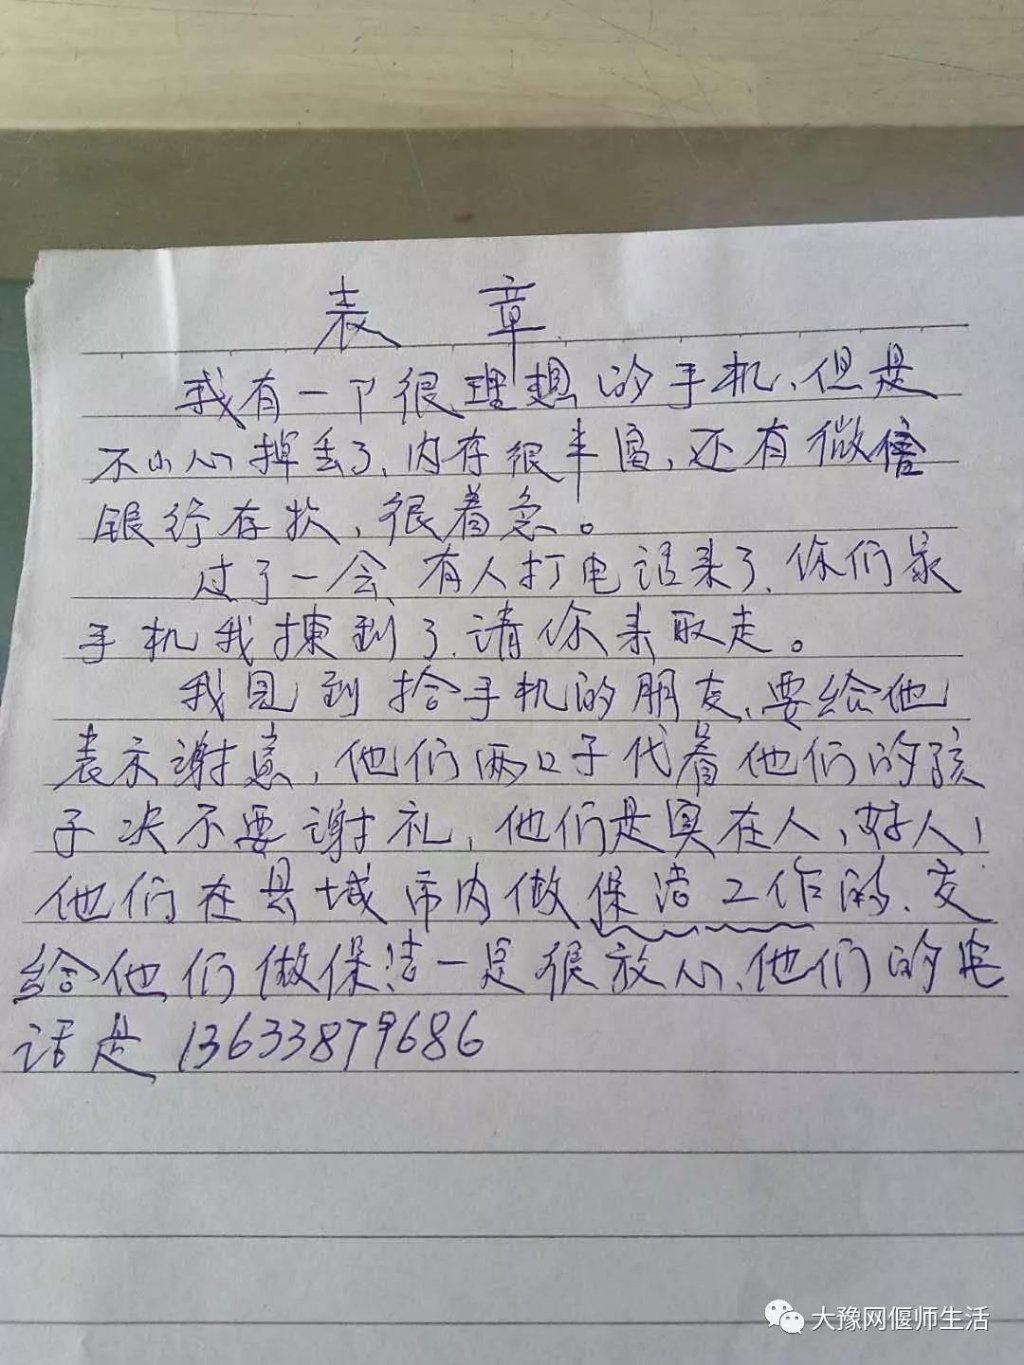 表章
我有一个很理想的手机、但是
不小心掉丢了、内存很丰富，还有微信
银行存款，很着急。
过了一会、有人打电话来了、你们家
手机我揀到了、请你来取走。
我见到拾手机的朋友、要给他
表示谢意，他们两口子代着他们的孩
子决不要谢礼，他们是实在人，好人，
他们在县城市内做保洁工作的、交
给他们做保洁一定很放心、他们的电
话是 13633879686
大豫网偃师生活